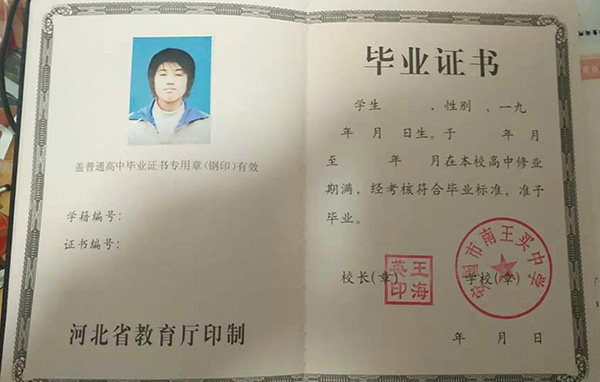 盖普通高中毕业证书专用章(钢印)有效
学籍编号:
证书编号:
河北省教育厅印制
毕业证书
学生 ,性别 ,一九
年 月 日生。于 年 月
至 年 月在本校高中修业
期满,经考核符合毕业标准,准予
毕业。
校长(章)
王海英印
学校(章)
安国市南王买中学
年 月 日